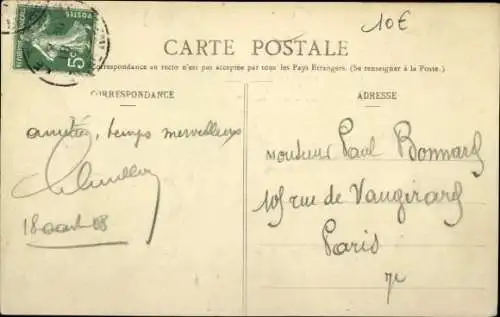 10€
POSTES
5c
CARTE POSTALE
Correspondance au recto n'est pas acceptée par tous les Pays Etrangers. (Se renseigner à la Poste.)
CORRESPONDANCE
ADRESSE
amitiés, temps merveilleux
18 août 08
Monsieur Paul Bonnard
105 rue de Vaugirard
Paris